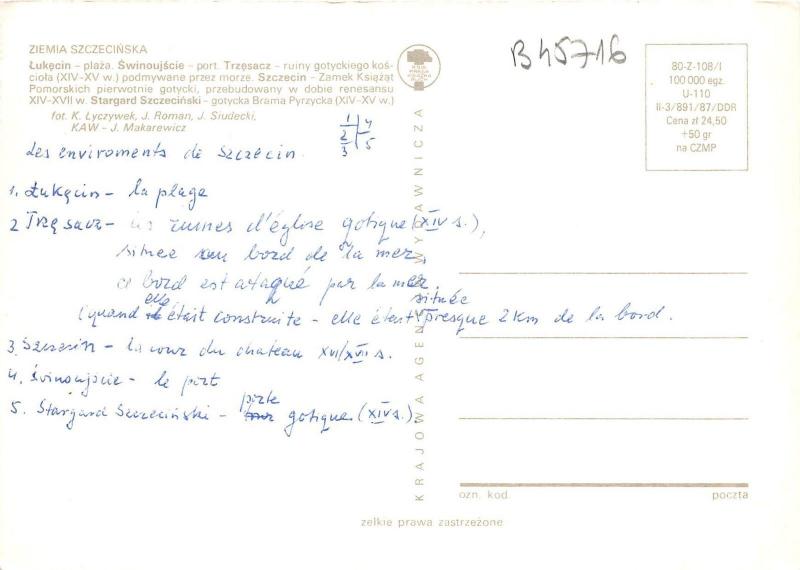 ZIEMIA SZCZECIŃSKA
Łukęcin – plaża. Świnoujście – port. Trzęsacz – ruiny gotyckiego koś-
cioła (XIV-XV w.) podmywane przez morze. Szczecin – Zamek Książąt
Pomorskich pierwotnie gotycki, przebudowany w dobie renesansu
XIV-XVII w. Stargard Szczeciński – gotycka Brama Pyrzycka (XIV-XV w.)
fot. K. Łyczywek, J. Roman, J. Siudecki,
KAW – J. Makarewicz
B45716
80-Z-108/I
100 000 egz.
U-110
II-3/891/87/DDR
Cena zł 24,50
+50 gr
na CZMP
1 4
2 5
3
Les enviroments de Szczecin.
1. Łukęcin – la plage
2 Trzęsacz – les ruines d'église gotique (XIV s.),
situee au bord de la mer,
a bord est ataqué par la mer.
elle située
(quand était construite – elle était presque 2 km de la bord.
3. Szczecin – la cour du chateau XVI/XVII s.
4. Świnoujście – le port
porte
5. Stargard Szczeciński – gotique (XIV s.)
KRAJOWA AGENCJA WYDAWNICZA
ozn. kod. poczta
zelkie prawa zastrzeżone